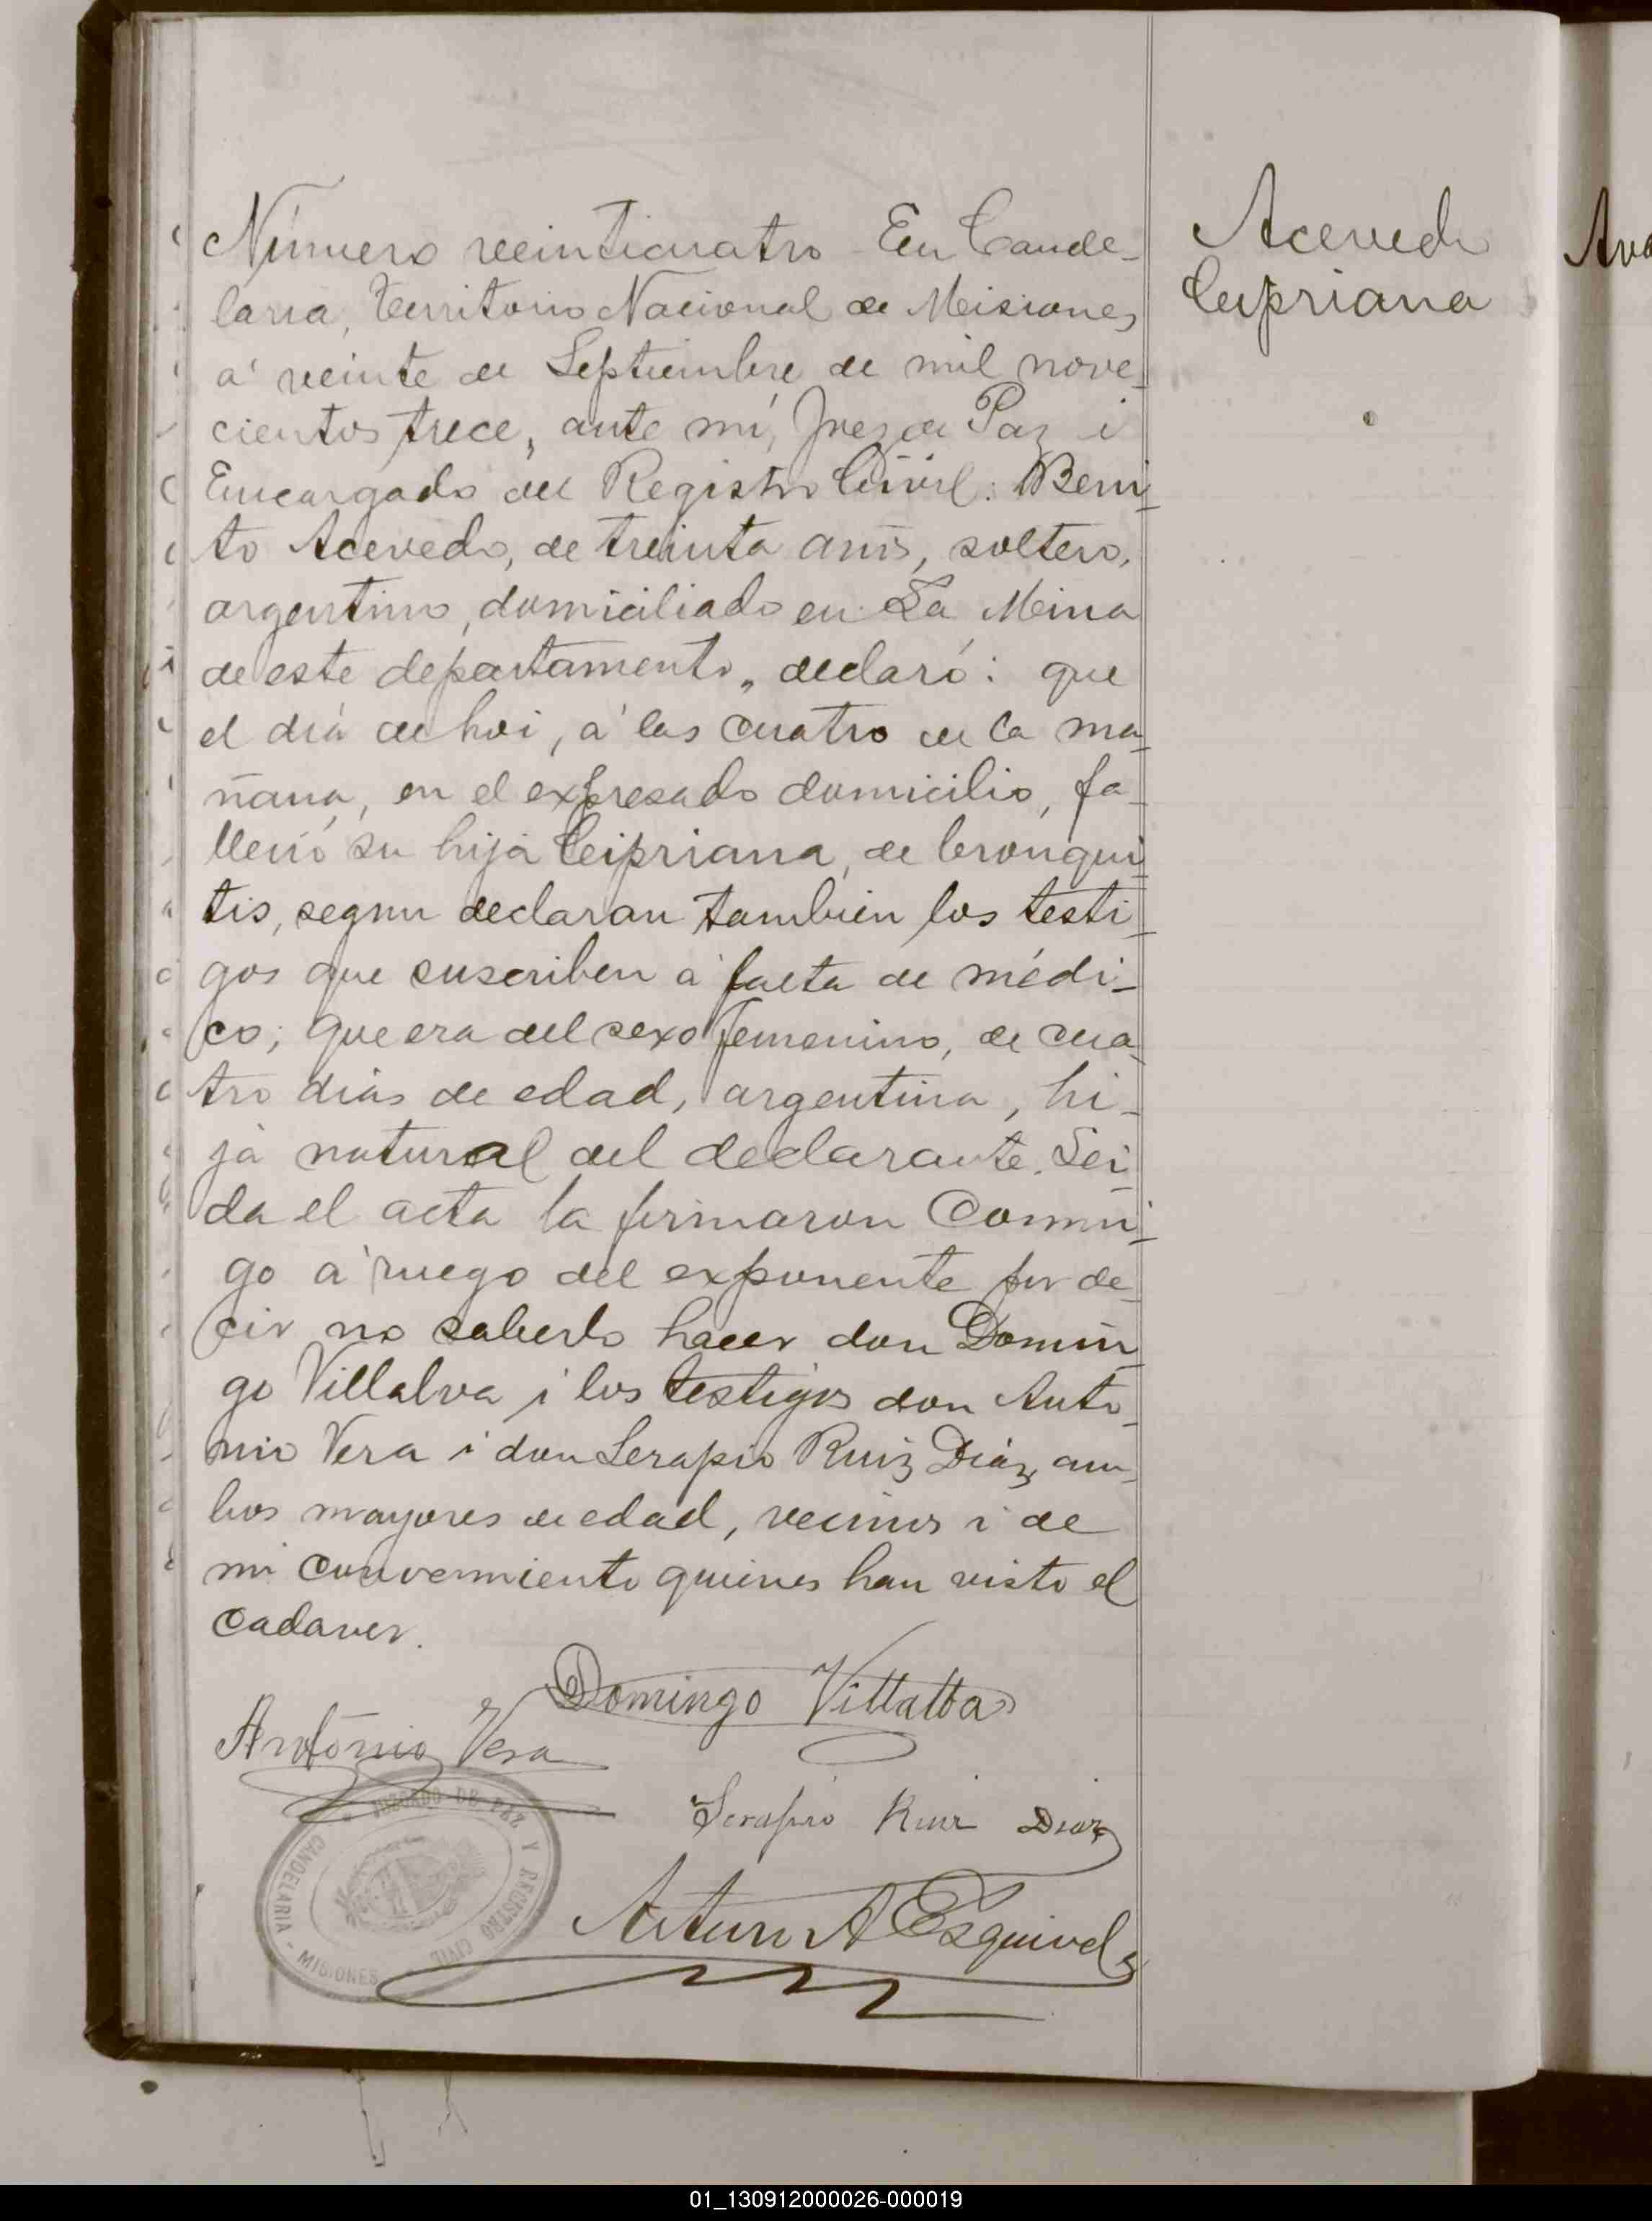 Número veinticuatro En Cande-
laria, Territorio Nacional de Misiones
á veinte de Septiembre de mil nove-
cientos trece, ante mí, Juez de Paz i
Encargado del Registro Civil: Beni-
to Acevedo, de treinta años, soltero,
argentino, domiciliado en La Mina
de este departamento, declaró: que
el día de hoi, á las cuatro de la ma-
ñana, en el expresado domicilio, fa-
lleció su hija Cipriana, de bronqui-
tis, segun declaran tambien los testi-
gos que suscriben á falta de médi-
co; que era del sexo femenino, de cua-
tro días de edad, argentina, hi-
ja natural del declarante. Lei-
da el acta la firmaron conmi-
go á ruego del exponente por de-
cir no saberlo hacer don Domin-
go Villalva i los testigos don Anto-
nio Vera i don Serapio Ruiz Diáz, am-
bos mayores de edad, vecinos i de
mi conocimiento quienes han visto el
cadaver.
Domingo Villalba
Antonio Vera
Serapio Ruiz Diaz
Arturo A Esquivel
JUZGADO DE PAZ Y REGISTRO CIVIL
CANDELARIA - MISIONES
Acevedo
Cipriana
01_130912000026-000019